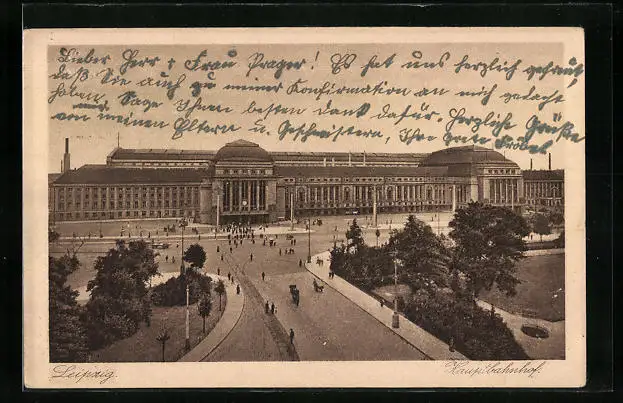 Lieber Herr u Frau Prager! Es hat uns herzlich gefreut,
daß Sie auch zu meiner Konfirmation an mich gedacht
haben. Sage Ihnen besten dank dafür. Herzliche Grüße
von meinen Eltern u. Geschwistern, Ihre
Leipzig.
Hauptbahnhof.